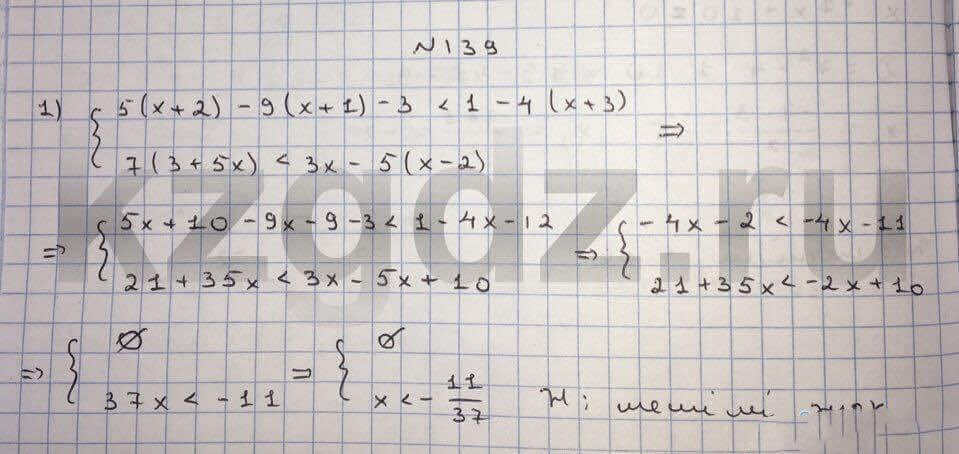 N 139
1) { 5(x+2) - 9(x+1) - 3 < 1 - 4(x+3)
7(3+5x) < 3x - 5(x-2) ⇒
⇒ { 5x+10-9x-9-3 < 1-4x-12
21+35x < 3x-5x+10 ⇒ { -4x-2 < -4x-11
21+35x < -2x+10
⇒ { ∅
37x < -11 ⇒ { ∅
x < - 11/37 Ж: шешімі
kzgdz.ru